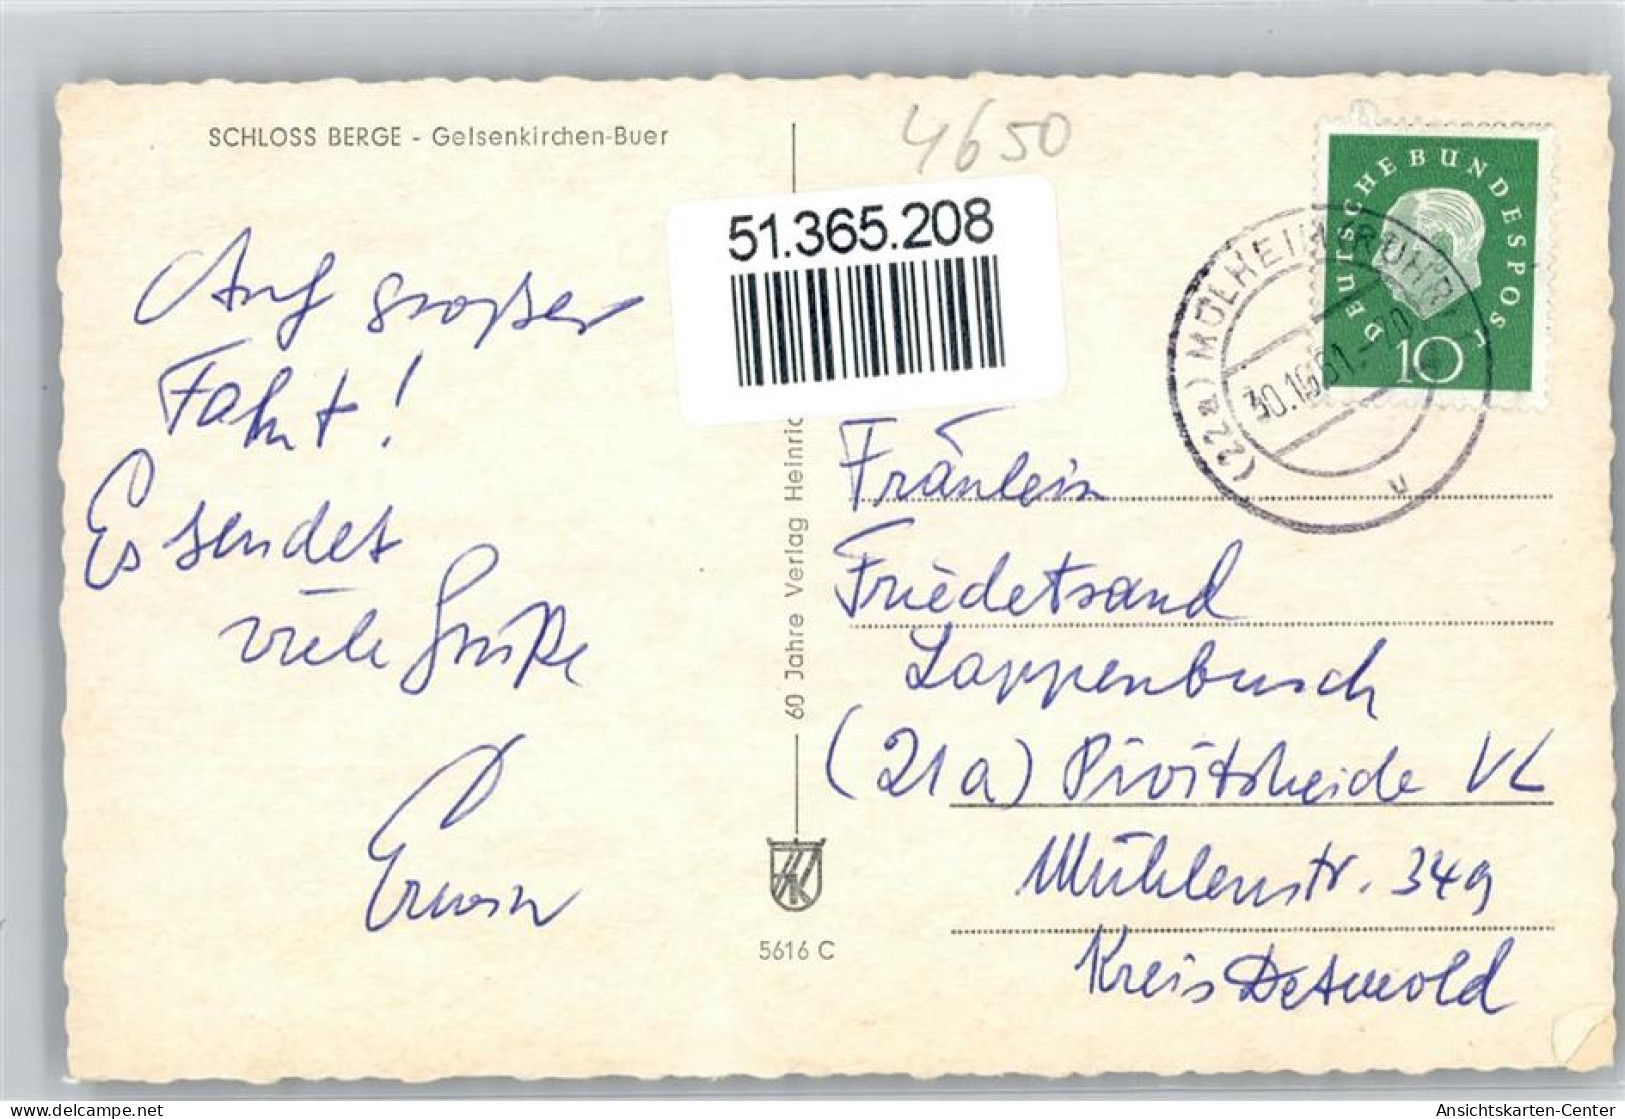 SCHLOSS BERGE - Gelsenkirchen-Buer
4650
51.365.208
DEUTSCHE BUNDESPOST
10
(22a) MÜLHEIM (RUHR)
u
Auf großer
Fahrt!
Es sendet
viele Grüße
60 Jahre Verlag Heinric
HK
5616 C
Fräulein
Friedetraud
Lappenbusch
(21a) Pivitsheide VL
Mühlenstr. 349
Kreis Detmold
delcampe.net
Ansichtskarten-Center